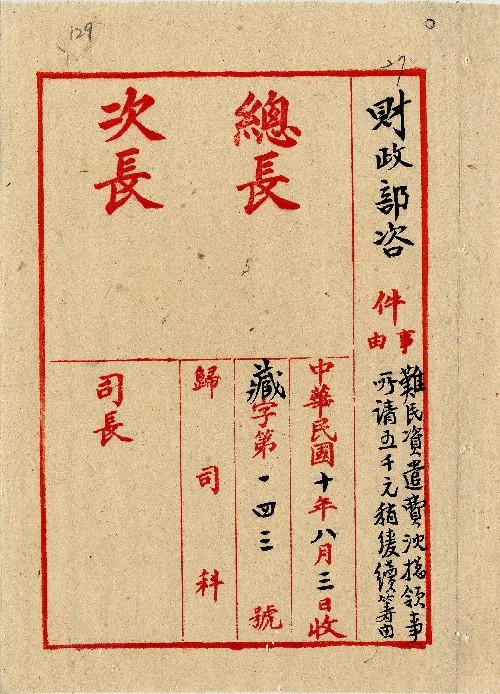 129
27
財政部咨
件
事由
難民資遣費沈揔領事
所请五千元稍緩續籌由
總長
次長
中華民國十年八月三日收
藏字第一四三號
歸司科
司長